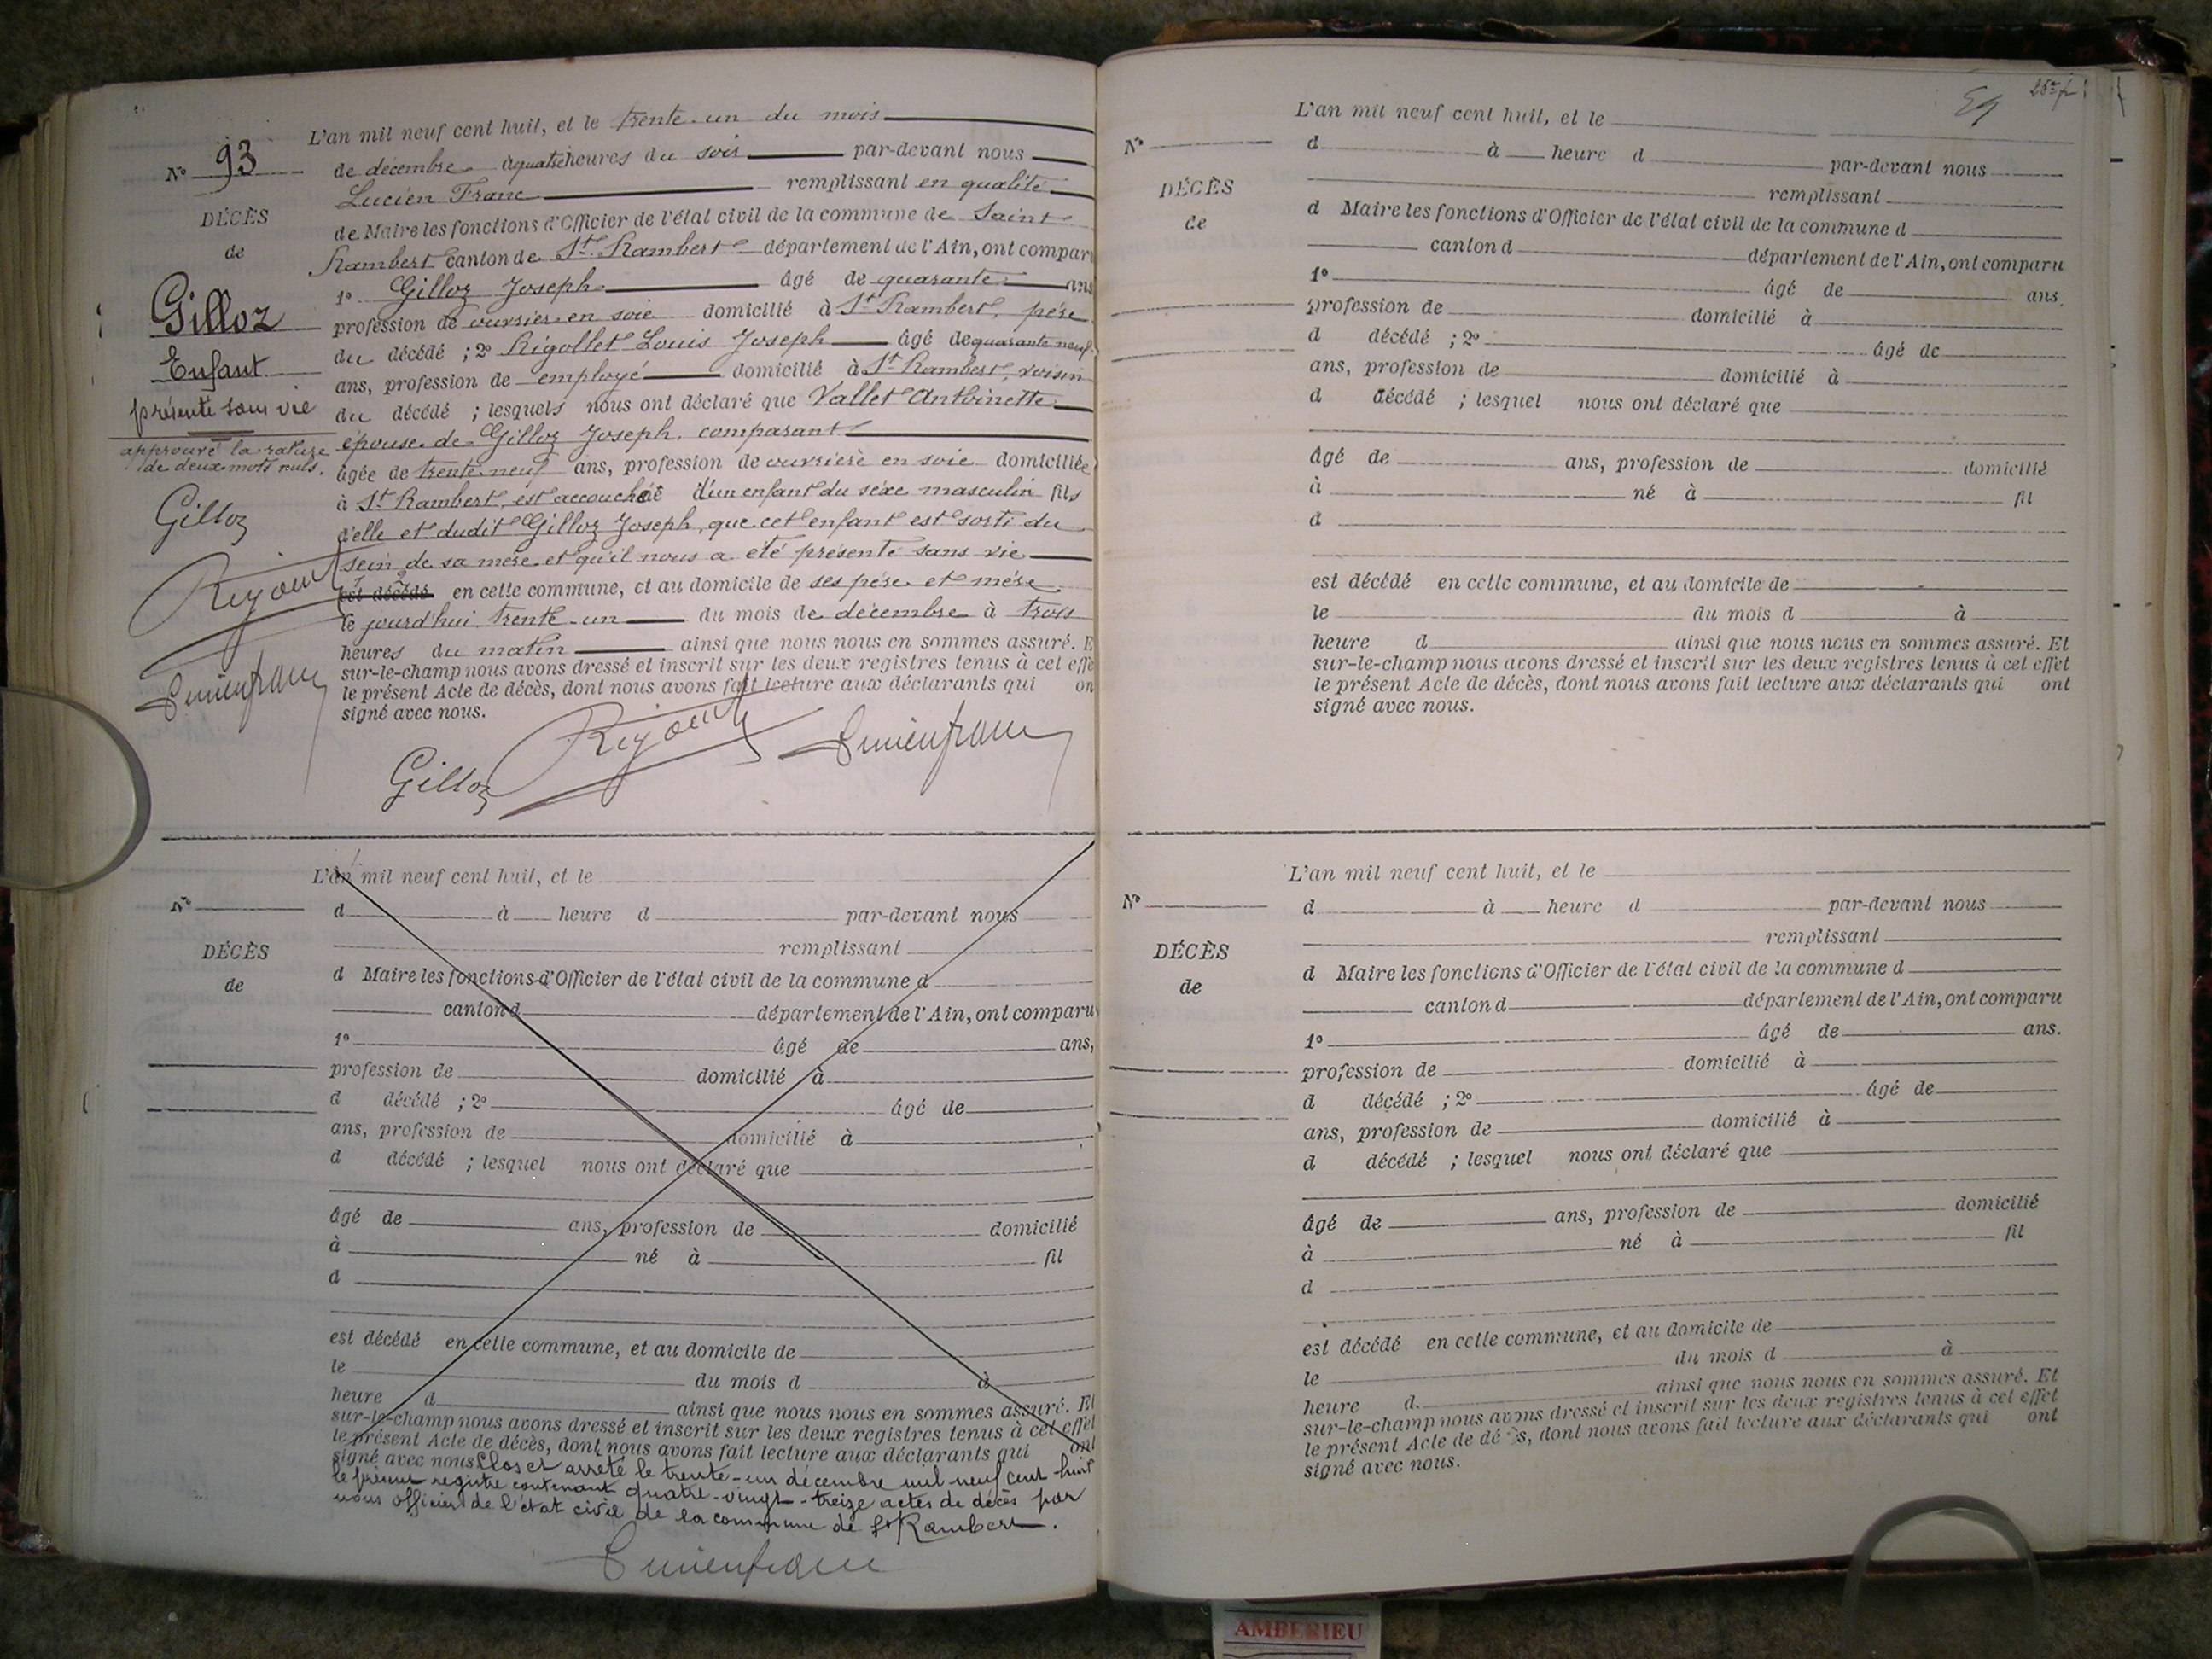 L'an mil neuf cent huit, et le trente-un du mois
N° 93
de décembre à quatre heures du soir par-devant nous
Lucien Franc remplissant en qualité
DÉCÈS
de Maire les fonctions d'Officier de l'état civil de la commune de Saint
de
Rambert canton de St Rambert département de l'Ain, ont compar
Gilloz
1° Gilloz Joseph âgé de quarante ans
profession de ouvrier en soie domicilié à St Rambert, père
Enfant
du décédé ; 2° Rigollet Louis Joseph âgé de quarante neuf
ans, profession de employé domicilié à St Rambert, voisin
présenté sans vie
du décédé ; lesquels nous ont déclaré que Vallet Anthinette
épouse de Gilloz Joseph, comparant
approuvé la rature
de deux mots nuls.
âgée de trente neuf ans, profession de ouvrière en soie domiciliée
à St Rambert, est accouchée d'un enfant du sexe masculin fils
Gilloz
d'elle et dudit Gilloz Joseph, que cet enfant est sorti du
sein de sa mère et qu'il nous a été présenté sans vie
est décédé en cette commune, et au domicile de ses père et mère
le jourd'hui trente-un du mois de décembre à trois
heures du matin ainsi que nous nous en sommes assuré. E
sur-le-champ nous avons dressé et inscrit sur les deux registres tenus à cet effe
le présent Acte de décès, dont nous avons fait lecture aux déclarants qui on
signé avec nous.
Gilloz
L'an mil neuf cent huit, et le
N°
d à heure d par-devant nous
remplissant
DÉCÈS
d Maire les fonctions d'Officier de l'état civil de la commune d
de
canton d département de l'Ain, ont comparu
1° âgé de ans,
profession de domicilié à
d décédé ; 2° âgé de
ans, profession de domicilié à
d décédé ; lesquel nous ont déclaré que
âgé de ans, profession de domicilié
à né à fil
d
est décédé en cette commune, et au domicile de
le du mois d à
heure d ainsi que nous nous en sommes assuré. Et
sur-le-champ nous avons dressé et inscrit sur les deux registres tenus à cet effet
le présent Acte de décès, dont nous avons fait lecture aux déclarants qui ont
signé avec nous. Clos et arrêté le trente-un décembre mil neuf cent huit
le présent registre contenant quatre-vingt-treize actes de décès par
nous officier de l'état civil de la commune de St Rambert.
L'an mil neuf cent huit, et le
N°
d à heure d par-devant nous
remplissant
DÉCÈS
d Maire les fonctions d'Officier de l'état civil de la commune d
de
canton d département de l'Ain, ont comparu
1° âgé de ans.
profession de domicilié à
d décédé ; 2° âgé de
ans, profession de domicilié à
d décédé ; lesquel nous ont déclaré que
âgé de ans, profession de domicilié
à né à fil
d
est décédé en cette commune, et au domicile de
le du mois d à
heure d ainsi que nous nous en sommes assuré. Et
sur-le-champ nous avons dressé et inscrit sur les deux registres tenus à cet effet
le présent Acte de décès, dont nous avons fait lecture aux déclarants qui ont
signé avec nous.
L'an mil neuf cent huit, et le
N°
d à heure d par-devant nous
remplissant
DÉCÈS
d Maire les fonctions d'Officier de l'état civil de la commune d
de
canton d département de l'Ain, ont comparu
1° âgé de ans.
profession de domicilié à
d décédé ; 2° âgé de
ans, profession de domicilié à
d décédé ; lesquel nous ont déclaré que
âgé de ans, profession de domicilié
à né à fil
d
est décédé en cette commune, et au domicile de
le du mois d à
heure d. ainsi que nous nous en sommes assuré. Et
sur-le-champ nous avons dressé et inscrit sur les deux registres tenus à cet effet
le présent Acte de décès, dont nous avons fait lecture aux déclarants qui ont
signé avec nous.
AMBERIEU